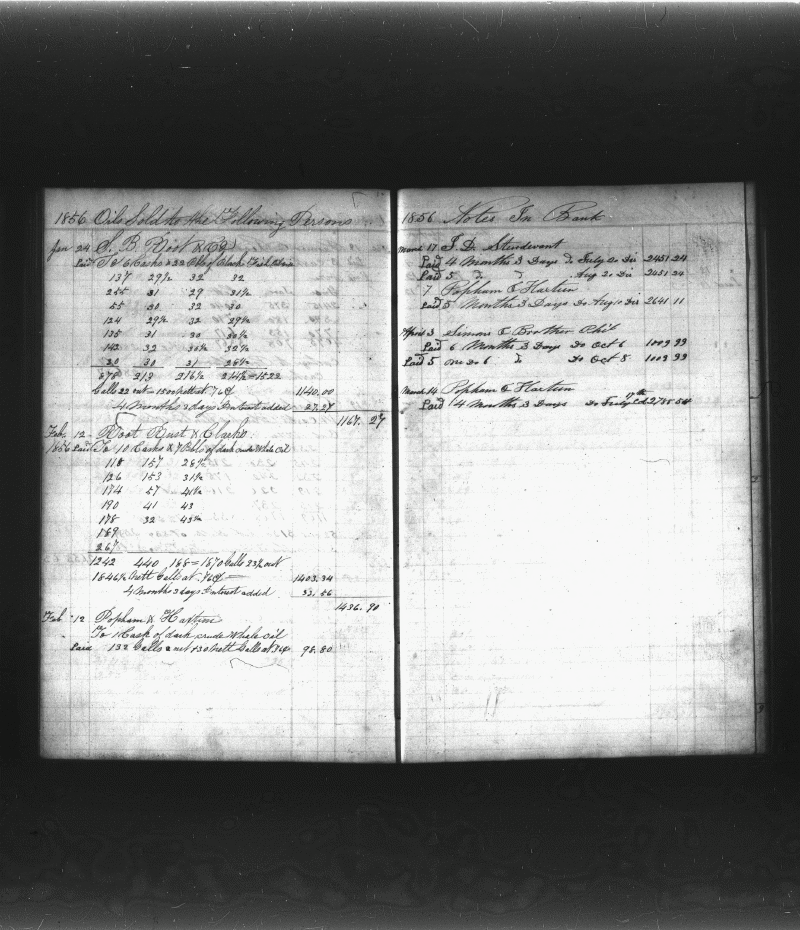 1856 Oils Sold to the Following Persons
Jan 24 S. B. Root & Co
Paid To 6 Casks & 22 of Clark Fish Oil
137 29½ 32 32
255 31 29 31½
55 30 32 30
124 29½ 32 29½
135 31 30 30½
142 32 30½ 32½
30 30 31 28½
878 213 216½ 214½ = 1522
Galls 22 out = 1500 nett at 76 1140.00
4 Months 3 days Interest added 27.27
1167. 27
Feb 12 Root Rust & Clarke
1856 Paid To 10 Casks & 7 Bbls of dark crude Whale Oil
118 157 28½
126 153 31½
174 57 41½
190 41 43
178 32 43½
189
267
1242 440 188 = 1870 Galls 23½ out
1846½ Nett Galls at 76 1403.34
4 Months 3 days Interest added 33.56
1436. 90
Feb 12 Popham & Hartim
To 1 Cask of dark crude Whale Oil
Paid 132 Galls 2 out 130 Nett Galls at 76 98.80
1856 Notes In Bank
March 17 J. D. Sturdevant
Paid 4 Months 3 Days Do July 20 Die 2451 24
Paid 5 " " Aug 20 Die 2451 24
7 Popham & Hartim
Paid 5 Months 3 Days Do Aug 10 Die 2641 11
April 3 Simons & Brother Phil
Paid 6 Months 3 Days Do Oct 6 1003 99
Paid 5 one Do 6 " Do Oct 8 1003 99
March 14 Popham & Hartim
Paid 4 Months 3 Days Do July 17th